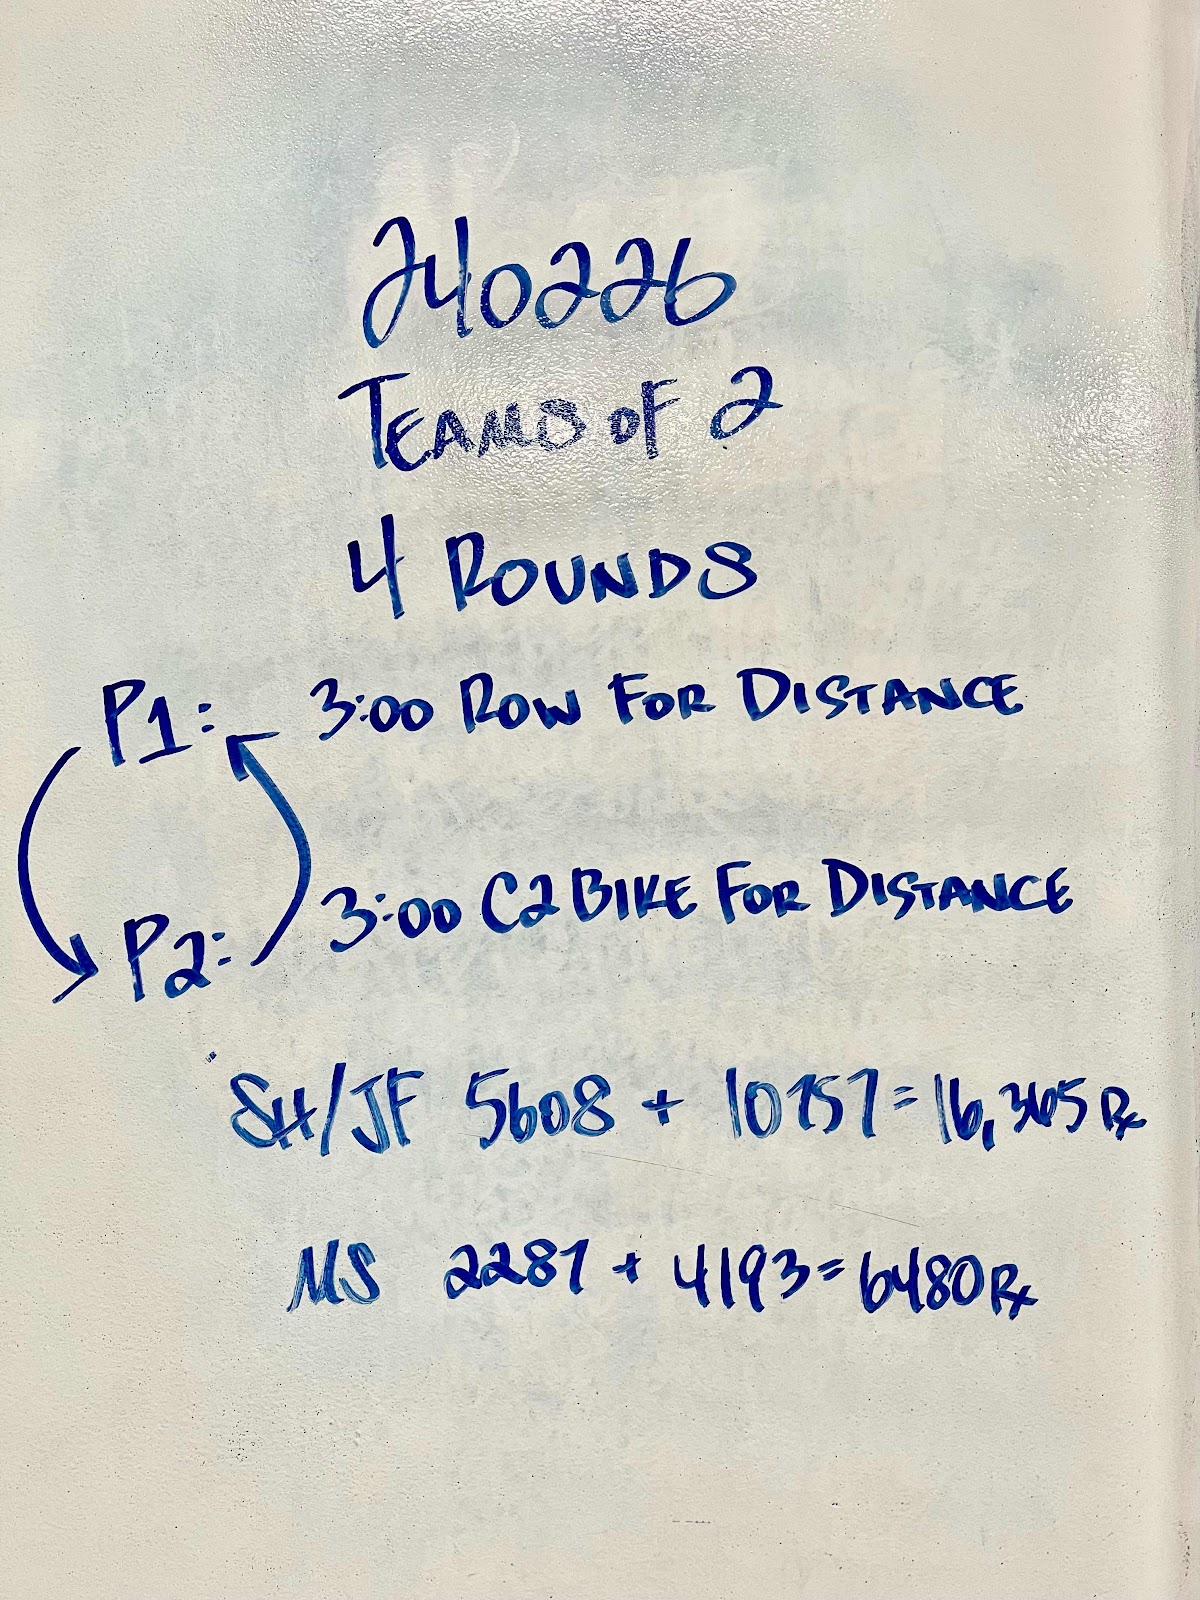 240226
TEAMS OF 2
4 ROUNDS
P1: 3:00 ROW FOR DISTANCE
P2: 3:00 C2 BIKE FOR DISTANCE
SH/JF 5608 + 10757 = 16,365 Rx
MS 2287 + 4193 = 6480 Rx